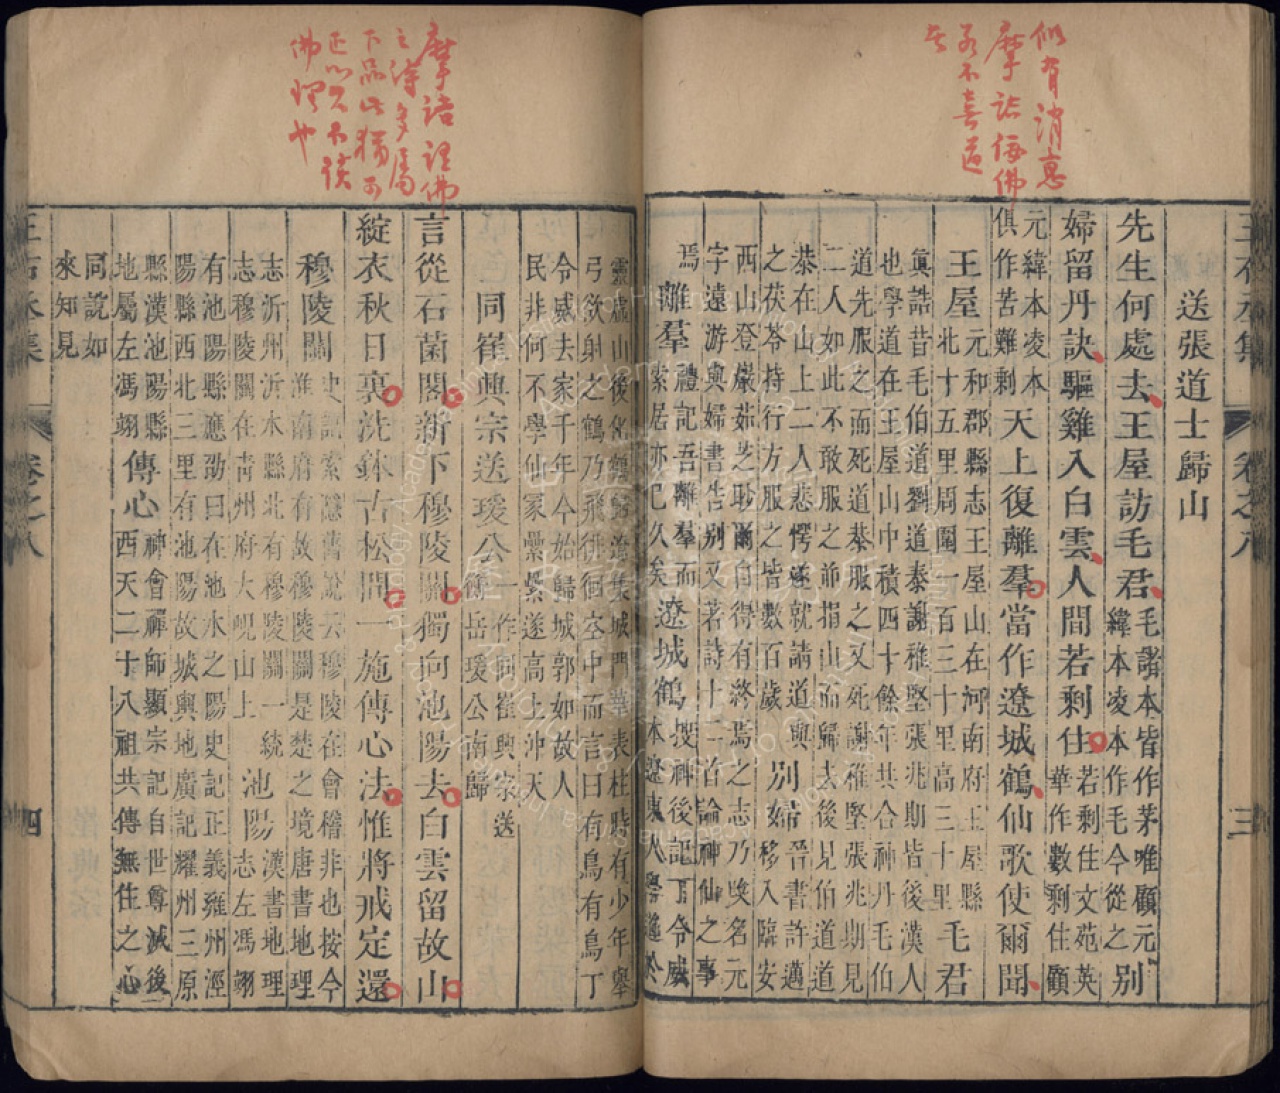 似有消息
摩詰侫佛
並不喜道
王右丞集
卷之八
三
送張道士歸山
先生何處去王屋訪毛君毛諸本皆作茅唯顧元
緯本凌本作毛今從之別
婦留丹訣驅雞入白雲人間若剩住若剩住文苑英
華作數剩住顧
元緯本凌本
俱作苦難剩天上復離羣當作遼城鶴仙歌使爾聞
王屋元和郡縣志王屋山在河南府王屋縣
北十五里周圍一百三十里高三十里毛君
眞誥昔毛伯道劉道恭謝稚堅張兆期皆後漢人
也學道在王屋山中積四十餘年共合神丹毛伯
道先服之而死道恭服之又死謝稚堅張兆期見
二人如此不敢服之前指山而歸去後見伯道道
恭在山上二人悲愕遂就請道與
之茯苓持行方服之皆數百歲別婦晉書許邁
移入臨安
西山登巖茹芝眇爾自得有終焉之志乃喚名元
字遠游與婦書告別又著詩十二首論神仙之事
焉離羣禮記吾離羣而
索居亦已久矣遼城鶴搜神後記丁令威
本遼東人學道於
摩詰談佛
之詩多屬
下品此猶可
正以其不談
佛理也
靈虛山後化鶴歸遼集城門華表柱時有少年舉
弓欲射之鶴乃飛徘徊空中而言曰有鳥有鳥丁
令威去家千年今始歸城郭如故人
民非何不學仙冢纍纍遂高上沖天
同崔興宗送瑗公一作同崔興宗送
衡岳瑗公南歸
言從石菌閣新下穆陵關獨向池陽去白雲留故山
綻衣秋日裏洗鉢古松間一施傳心法惟將戒定還
穆陵關史記索隱舊說云穆陵在會稽非也按今
淮南府有故穆陵關是楚之境唐書地理
志沂州沂水縣北有穆陵關一統
志穆陵關在靑州府大峴山上池陽漢書地理
志左馮翊
有池陽縣應劭曰在池水之陽史記正義雍州涇
陽縣西北三里有池陽故城輿地廣記耀州三原
縣漢池陽縣
地屬左馮翊傳心神會禪師顯宗記自世尊滅後
西天二十八祖共傳無住之心
同說如
來知見
王右丞集
卷之八
四